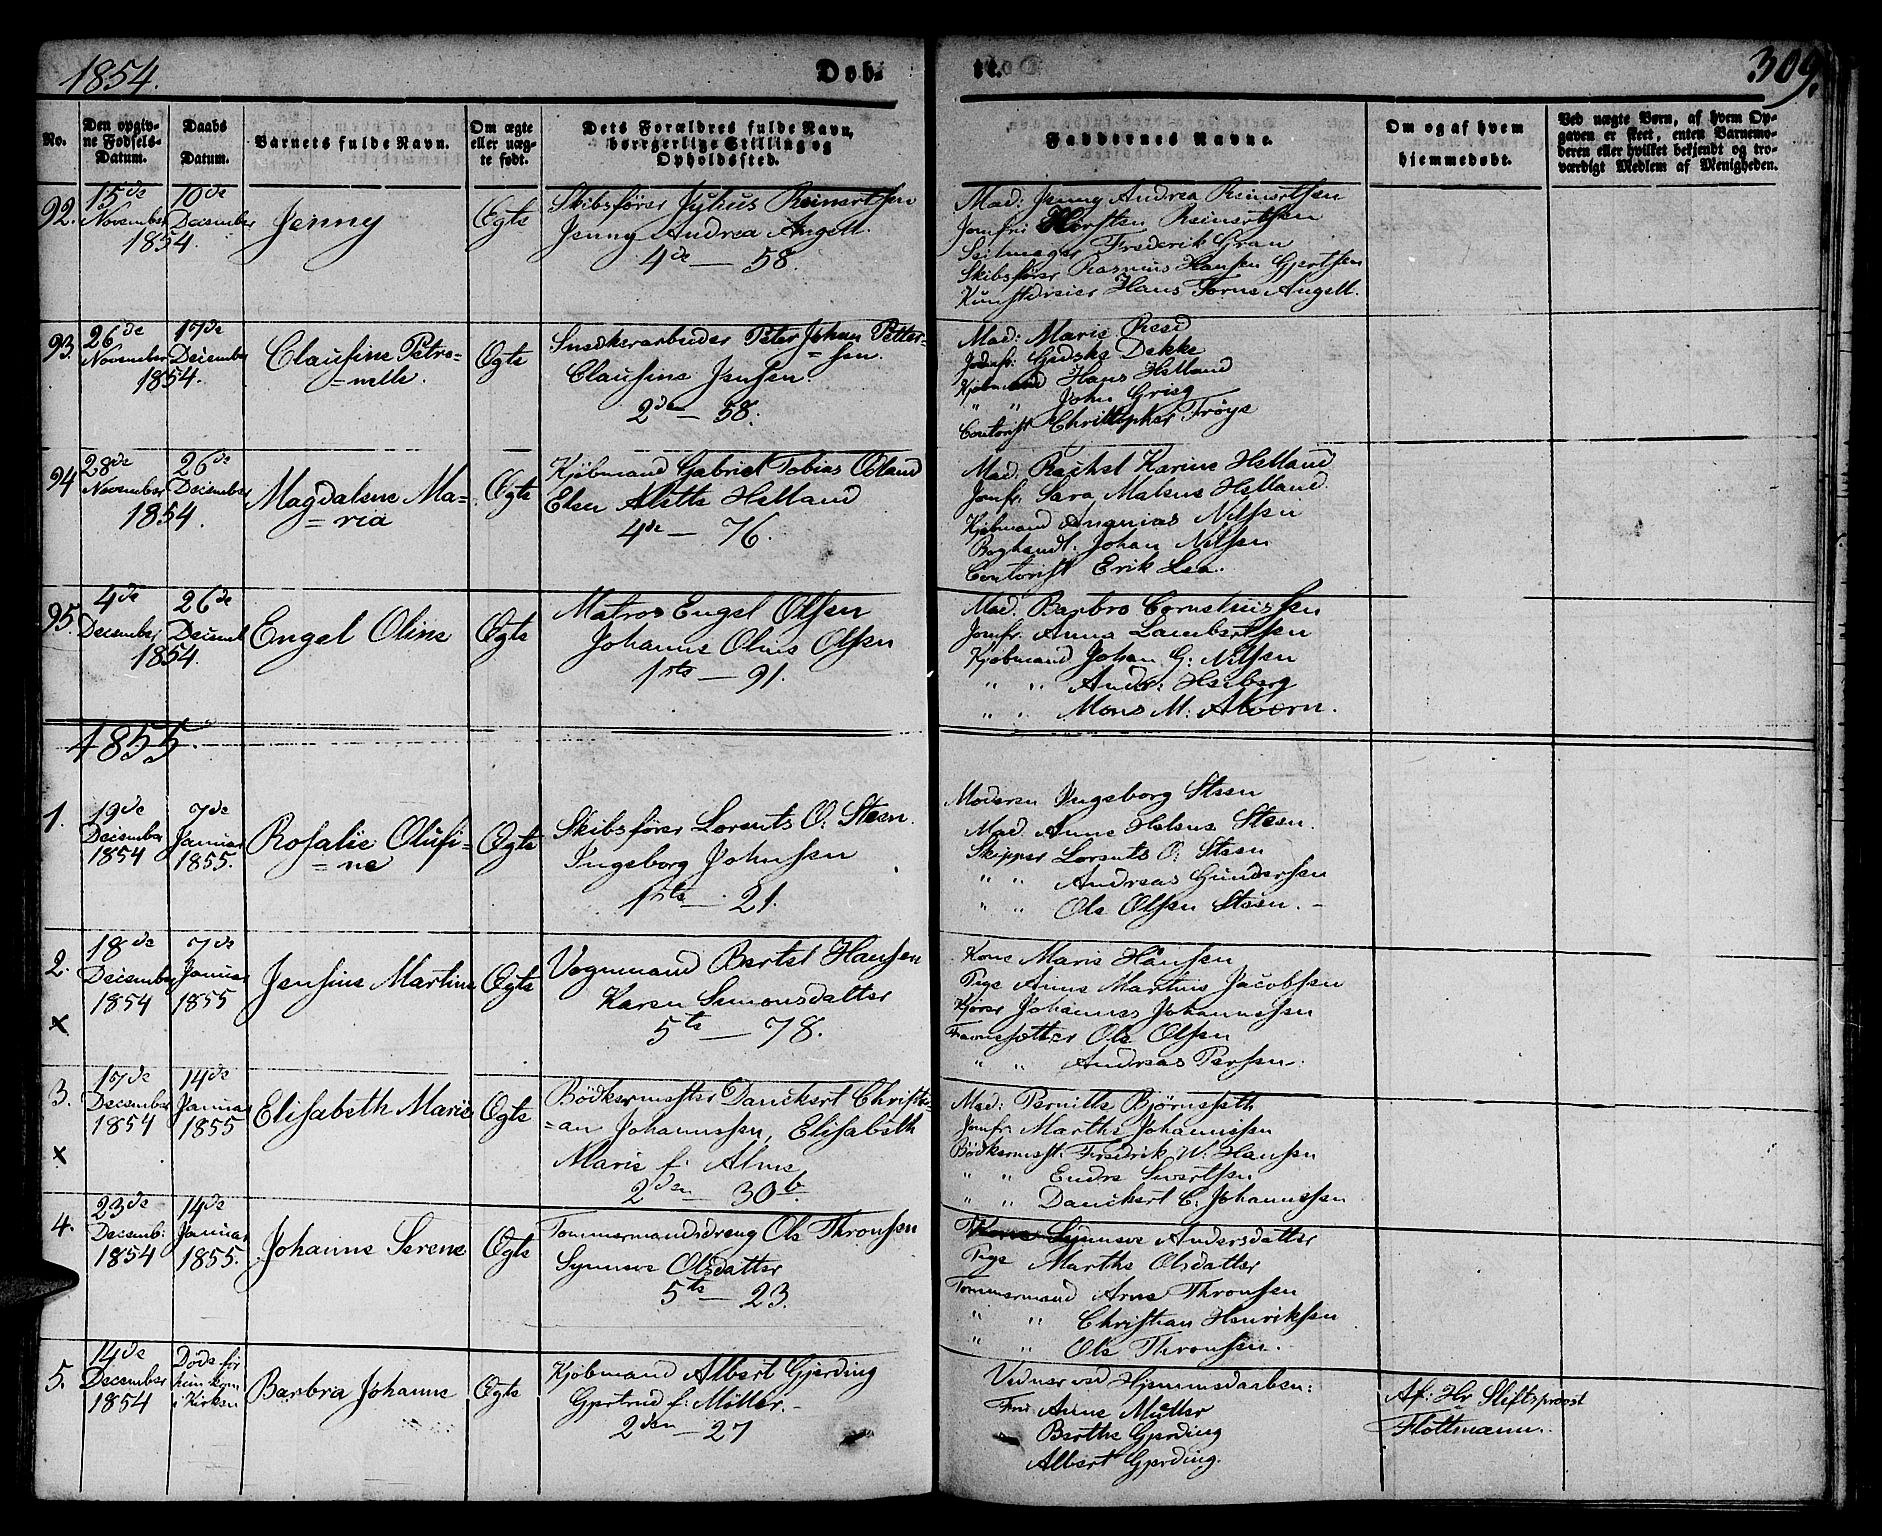 1854.
Døb-
te.
309.
No.
Den opgiv-
ne Fødsels-
Datum.
Daabs
Datum.
Barnets fulde Navn.
Om ægte
eller uæg-
te født.
Dets Forældres fulde Navn,
borgerlige Stilling og
Opholdssted.
Faddernes Navne.
Om og af hvem
hjemmedøbt.
Ved uægte Børn, af hvem Op-
gaven er skeet, enten Barnemo-
deren eller hvilket bekjendt og tro-
værdigt Medlem af Menigheden.
92.
15de
November
1854
10de
Deicember
1854.
Jenny
Ægte
Skibsfører Julius Reinertsen
Jenny Andrea Angell.
4de — 58.
Mad: Jenny Andrea Reinertsen
Jomfr: Reinertsen
Seilmager Frederik Gran
Skibsfører Rasmus Hansen Gjertsen
Kunstdreier Hans Angell.
93.
26de
November
1854.
17de
Deicember
Clausine Petro-
=nelle.
Ægte
Snedkerarbeider Peter Johan Petter-
=sen.
Clausine Jensen.
2de — 58.
Mad: Marie Resd
Jomfr: Gjedske Dekke
Kjøbmand Hans Helland
" " John Grieg
Contorist Christopher Frøye
94
28de
November
1854.
26de
Deicember
Magdalene Ma=
=ria
Ægte
Kjøbmand Gabriel Tobias Øvland
Elen Aletta Helland
4de — 76.
Mad. Rachel Karine Helland
Jomfr. Sara Malene Helland.
Kjøbmand Ananias Nilsen
Boghandl. Johan Nilsen
Contorist Erik Lea.
95.
4de
December
1854.
26de
Deicemb
Engel Oline
Ægte
Matros Engel Olsen
Johanne Olens Olsen
1ste — 91.
Mad. Barbro Corneliussen
Jomfr. Anna Lambertsen
Kjøbmand Johan G: Nilsen
" " Andr: Heiberg
" " Mons M. Alvern.
1855.
1.
19de
Deicember
1854
7de
Januar
1855.
Rosalie Olufi-
=ne
Ægte
Skibsfører Lorents O. Steen.
Ingeborg Johnsen
1ste — 21.
Moderen Ingeborg Steen
Mad. Anne Helene Steen.
Skipper Lorents O: Steen
" " Andreas Gundersen
" " Ole Olsen Steen. -
2.
x
18de
Deicember
1854
7de
Januar
1855
Jensine Martine
Ægte
Vognmand Bertel Hansen
Karen Simonsdatter
5te — 78.
Kone Marie Hansen
Pige Anne Martine Jacobsen
Kjører Johannes Johannessen
Favnesætter Ole Olsen
" " Andreas Persen.
3.
x
17de
December
1854
14de
Januar
1855
Elisabeth Marie
Ægte
Bödkermester Danckert Christi=
=an Johannesen, Elisabeth
Marie f: Alme
2den — 30b.
Mad: Pernille Bjørneseth
Jomfr Marthe Johannesen
Bödkermest: Fredrik W. Hansen
" " Endre Sivertsen
" " Danckert C. Johannesen
4.
23de
Decemb:
1854
14de
Januar
1855.
Johanne Serene
Ægte
Tømmermandsdreng Ole Thronsen
Synneve Olsdatter
5te — 23.
Kone Synneve Andersdatter
Pige Marthe Olsdatter
Tømmermand Arne Thronsen
" " Christian Henriksen
" Ole Thronsen.
5.
14de
December
1854
Døde før
hun kom
i Kirken
Barbra Johanne
Ægte
Kjøbmand Albert Gjerding
Gjertrud f: Møller.-
2den — 27
Vidner ved Hjemmedaaben:
Fru Anne Müller
Berthe Gjerding
Albert Gjerding.
Af: Hr Stiftsprovst
Flottmann.